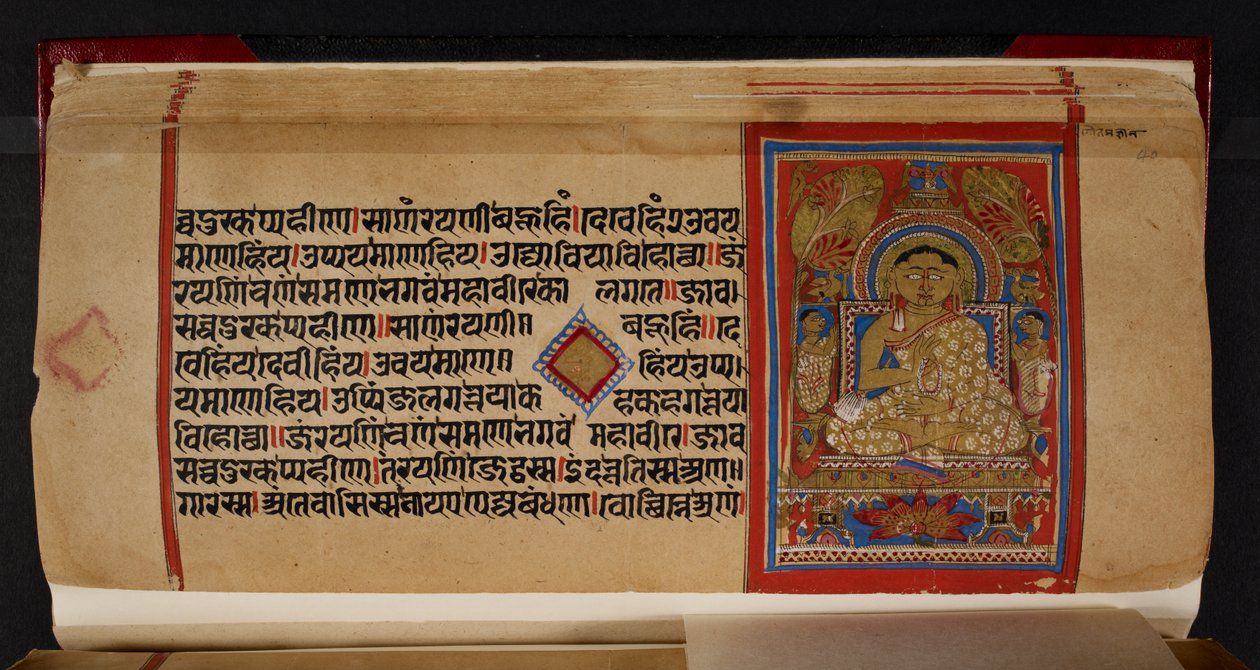 व्वदुरकप्पहीणे।साणंरयणीबहूहिं।देवेहिं२उवय
माणेहिंय।उप्पयमाणेहिंय।उज्जोवियाविहोत्था॥जं
रयणिंचणंसमणेभगवंमहावीरेका लगए॥जाव।
सव्वदुरकप्पहीणे॥साणंरयणी॥ बहूहिं॥दे
वेहिंयदेवीहिंय।उवयमाणे॥ हिंयउप्प।
यमाणेहिंय।उप्पिंजलगभूयाक हकहगभूया
विहोत्था॥जंरयणिंचणंसमणेभगवं महावीरे।जाव
सव्वदुरकप्पहीणे।तंरयणिंजेट्ठस्स।इंदभूतिस्सअण॥
गारस्स।अंतेवासिस्सनायएपेज्जबंधणे।वोच्छिन्नेअणं।
40